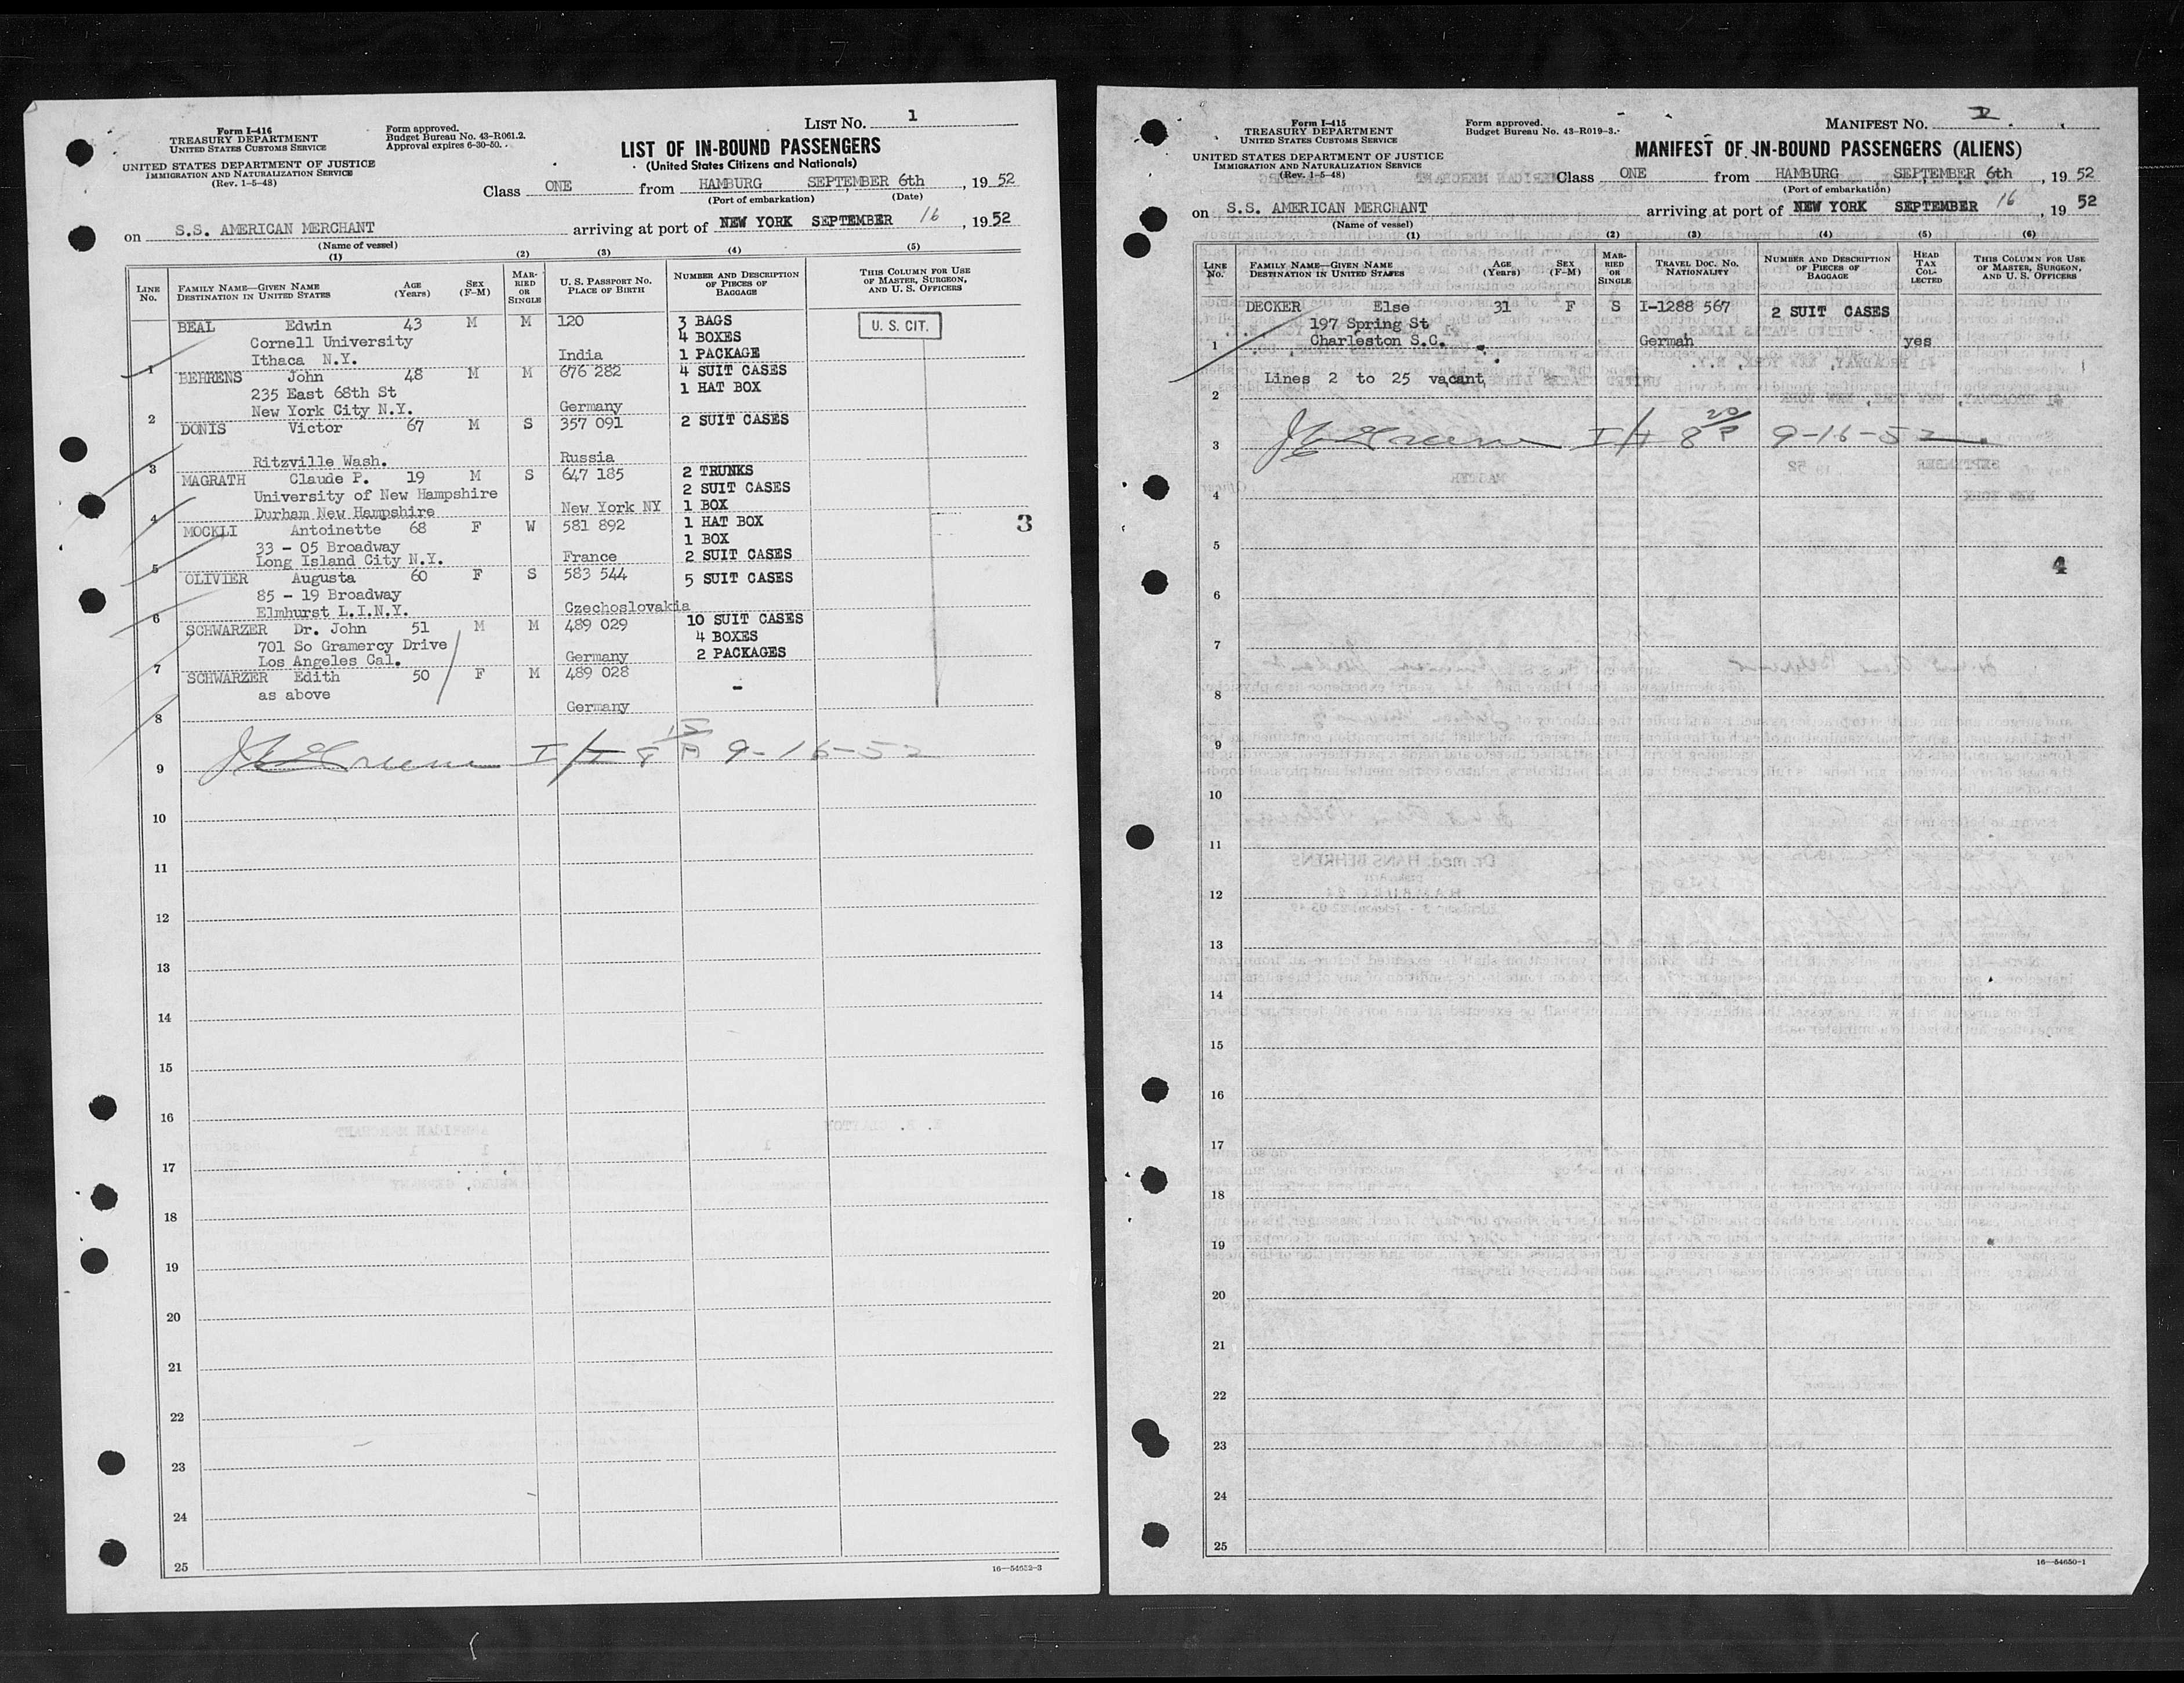 Form I-416
TREASURY DEPARTMENT
UNITED STATES CUSTOMS SERVICE
UNITED STATES DEPARTMENT OF JUSTICE
IMMIGRATION AND NATURALIZATION SERVICE
(Rev. 1-5-48)
Form approved.
Budget Bureau No. 43-R061.2.
Approval expires 6-30-50.
LIST NO. 1
LIST OF IN-BOUND PASSENGERS
(United States Citizens and Nationals)
Class ONE from HAMBURG SEPTEMBER 6th, 19 52
(Port of embarkation) (Date)
on S.S. AMERICAN MERCHANT arriving at port of NEW YORK SEPTEMBER 16, 19 52
(Name of vessel)
(1) (2) (3) (4) (5)
LINE No. FAMILY NAME—GIVEN NAME DESTINATION IN UNITED STATES AGE (Years) SEX (F-M) MARRIED OR SINGLE U. S. PASSPORT NO. PLACE OF BIRTH NUMBER AND DESCRIPTION OF PIECES OF BAGGAGE THIS COLUMN FOR USE OF MASTER, SURGEON, AND U. S. OFFICERS
BEAL Edwin 43 M M 120 3 BAGS U. S. CIT.
Cornell University 4 BOXES
1 Ithaca N.Y. India 1 PACKAGE
BEHRENS John 48 M M 676 282 4 SUIT CASES
235 East 68th St 1 HAT BOX
2 New York City N.Y. Germany
DONIS Victor 67 M S 357 091 2 SUIT CASES
3 Ritzville Wash. Russia
MAGRATH Claude P. 19 M S 647 185 2 TRUNKS
University of New Hampshire 2 SUIT CASES
4 Durham New Hampshire New York NY 1 BOX
MOCKLI Antoinette 68 F W 581 892 1 HAT BOX 3
33 - 05 Broadway 1 BOX
5 Long Island City N.Y. France 2 SUIT CASES
OLIVIER Augusta 60 F S 583 544 5 SUIT CASES
85 - 19 Broadway
6 Elmhurst L.I.N.Y. Czechoslovakia
SCHWARZER Dr. John 51 M M 489 029 10 SUIT CASES
701 So Gramercy Drive 4 BOXES
7 Los Angeles Cal. Germany 2 PACKAGES
SCHWARZER Edith 50 F M 489 028 -
as above
8 Germany
9 9-16-52
10
11
12
13
14
15
16
17
18
19
20
21
22
23
24
25
16—54652-3
Form I-415
TREASURY DEPARTMENT
UNITED STATES CUSTOMS SERVICE
UNITED STATES DEPARTMENT OF JUSTICE
IMMIGRATION AND NATURALIZATION SERVICE
(Rev. 1-5-48)
Form approved.
Budget Bureau No. 43-R019-3.
MANIFEST NO.
MANIFEST OF IN-BOUND PASSENGERS (ALIENS)
Class ONE from HAMBURG SEPTEMBER 6th, 19 52
(Port of embarkation)
on S.S. AMERICAN MERCHANT arriving at port of NEW YORK SEPTEMBER 16, 19 52
(Name of vessel)
(1) (2) (3) (4) (5) (6)
LINE No. FAMILY NAME—GIVEN NAME DESTINATION IN UNITED STATES AGE (Years) SEX (F-M) MARRIED OR SINGLE TRAVEL DOC. NO. NATIONALITY NUMBER AND DESCRIPTION OF PIECES OF BAGGAGE HEAD TAX COLLECTED THIS COLUMN FOR USE OF MASTER, SURGEON, AND U. S. OFFICERS
DECKER Else 31 F S I-1288 567 2 SUIT CASES
197 Spring St
1 Charleston S.C. German yes
Lines 2 to 25 vacant
2
3 9-16-52
4
5
4
6
7
8
9
10
11
12
13
14
15
16
17
18
19
20
21
22
23
24
25
16—54650-1